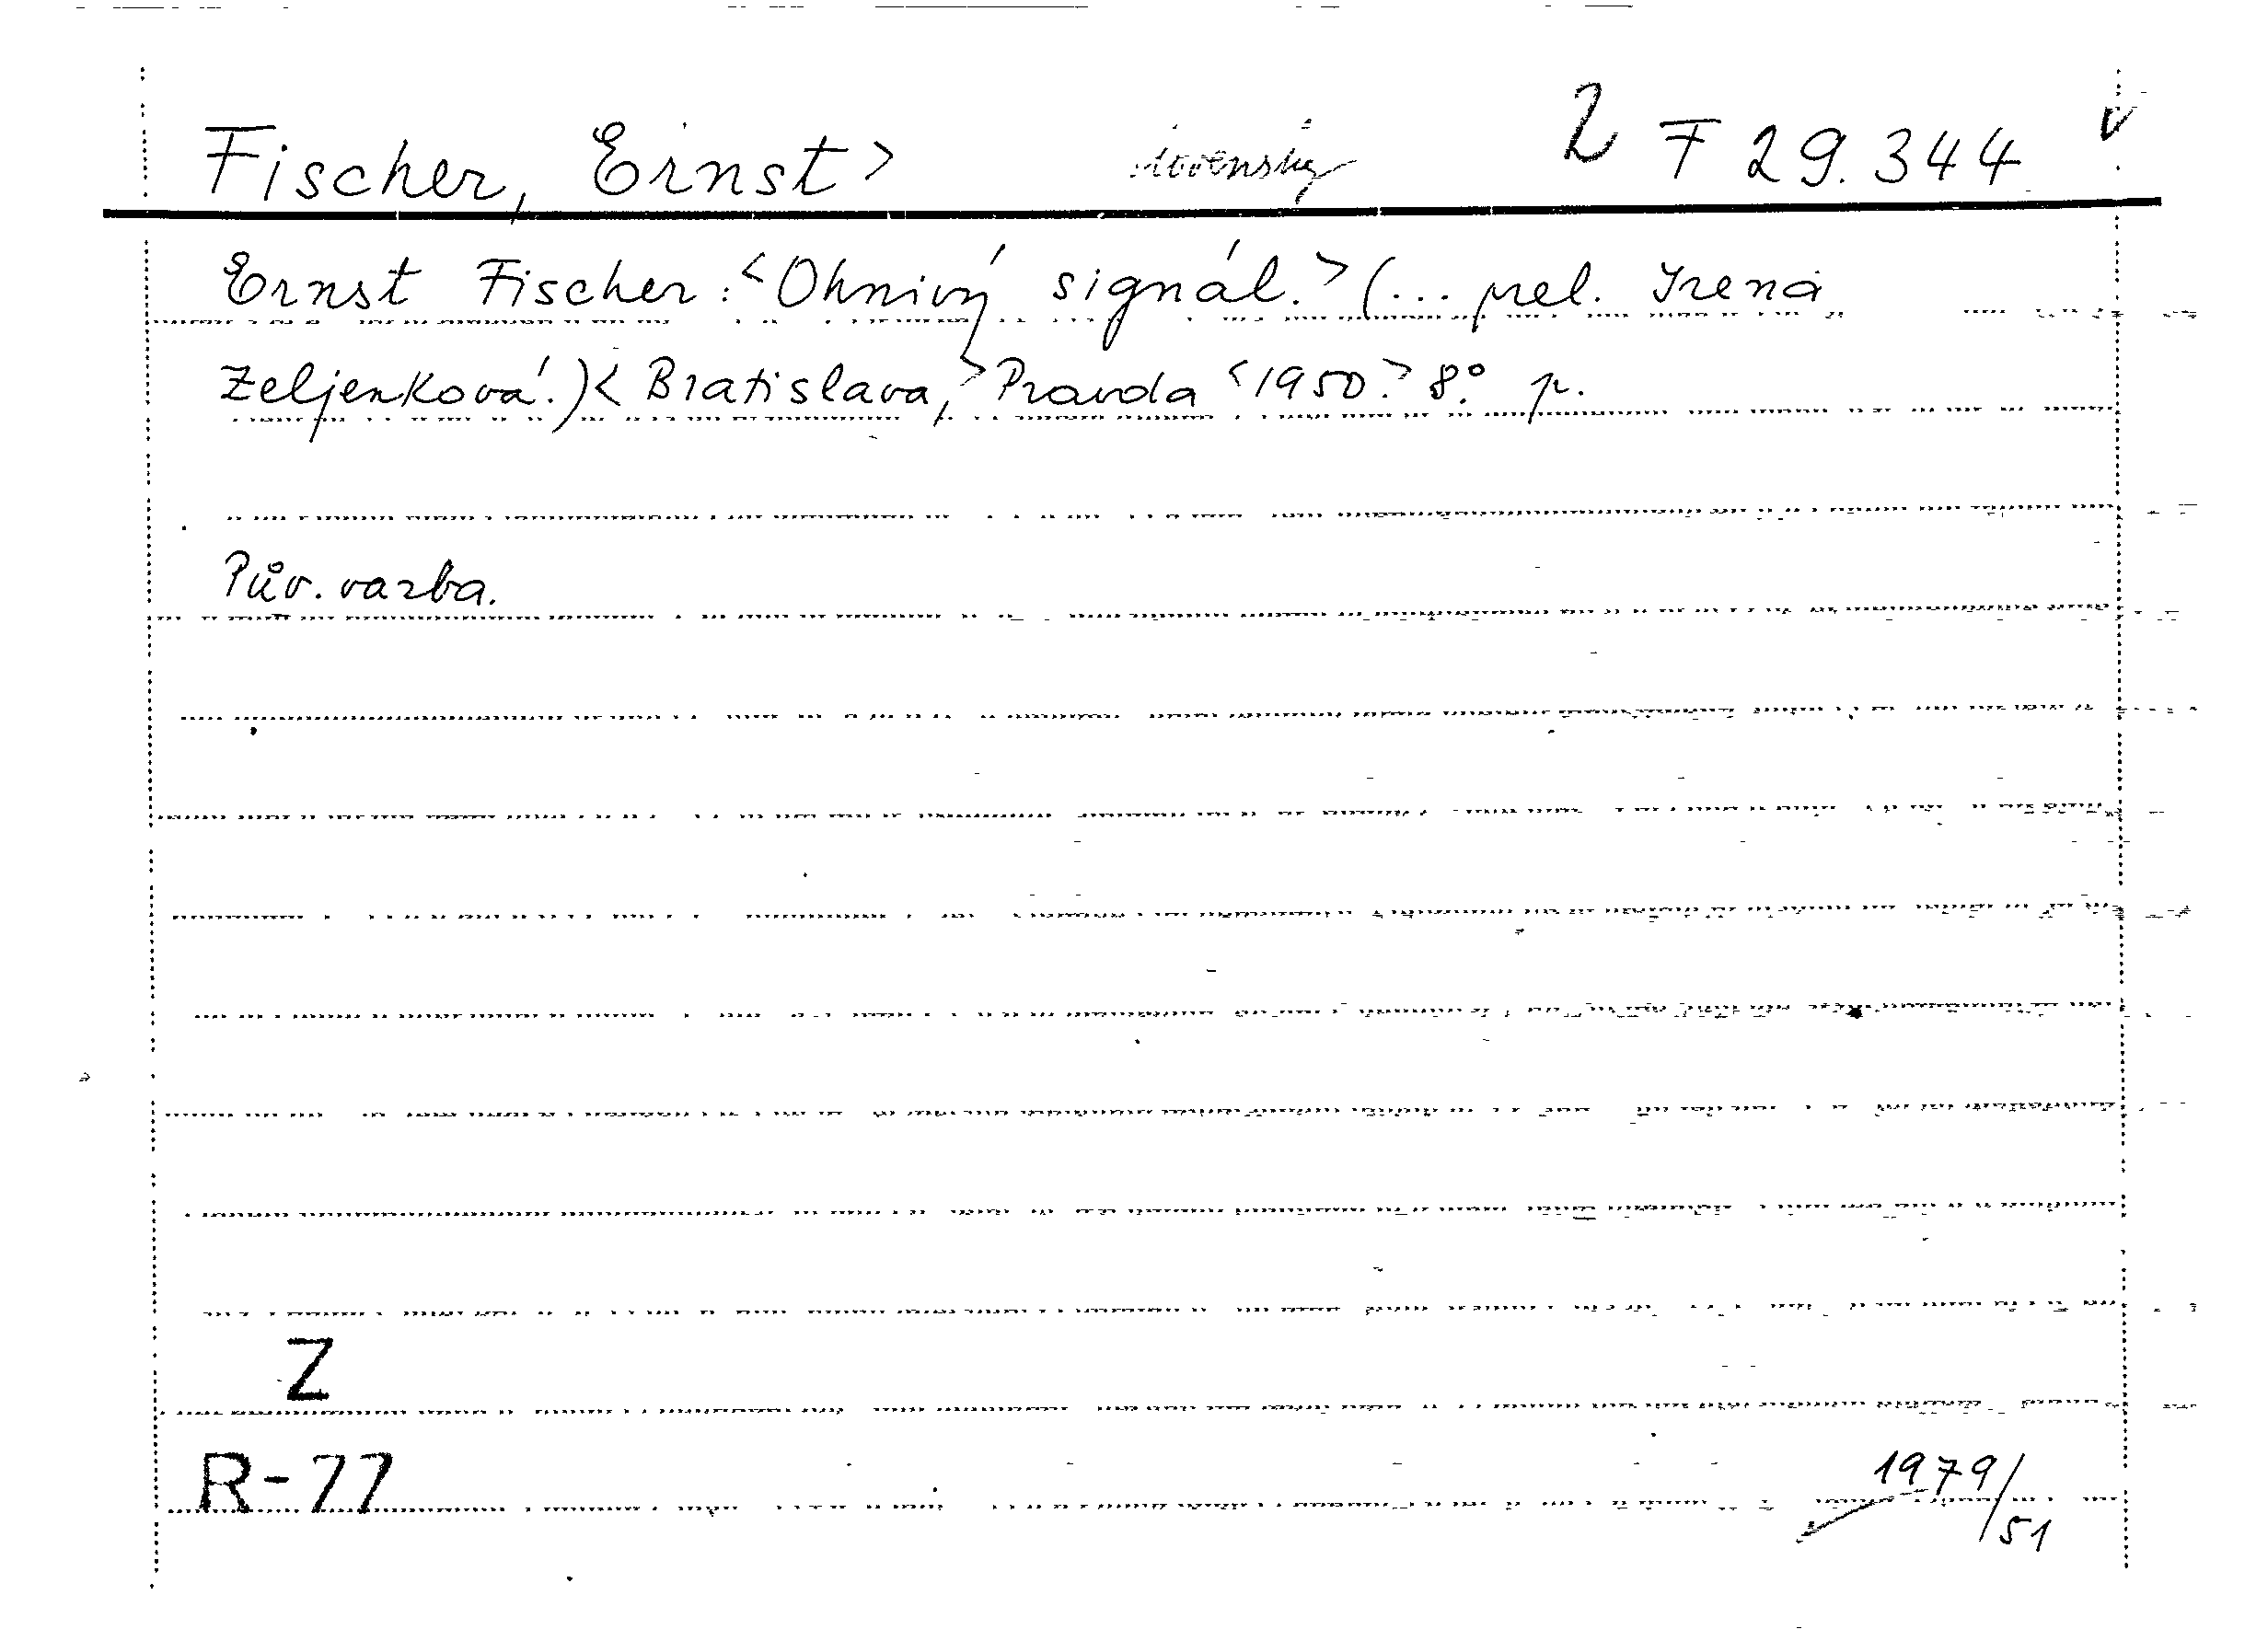 Fischer, Ernst> slovensky 2 F 29.344 v
Ernst Fischer: <Ohnivý signál.> (... prel. Irena
Zeljenková.) < Bratislava, > Pravda <1950.> 8.° p.
Pův. vazba.
Z
R-77
1979/51